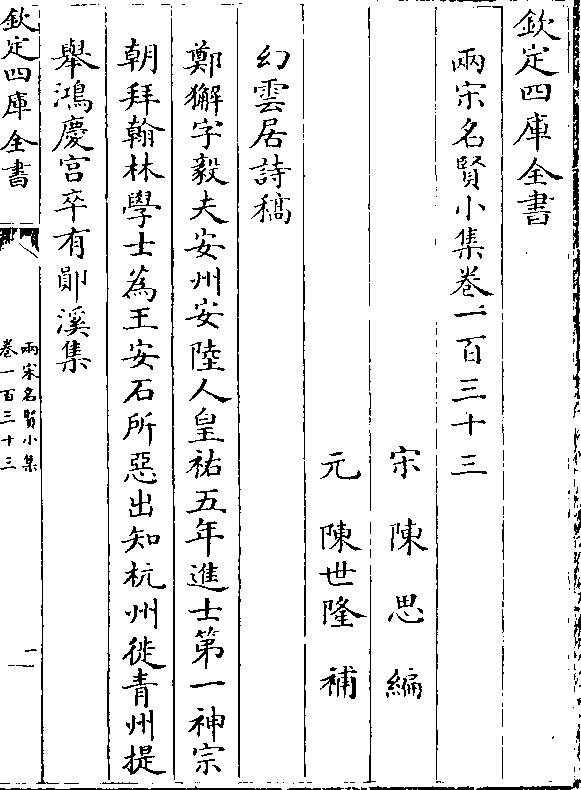 欽定四庫全書
兩宋名賢小集卷一百三十三
宋陳思編
元陳世隆補
幻雲居詩稿
鄭獬字毅夫安州安陸人皇祐五年進士第一神宗
朝拜翰林學士為王安石所惡出知杭州徙青州提
舉鴻慶宮卒有鄖溪集
欽定四庫全書
兩宋名賢小集
卷一百三十三
一